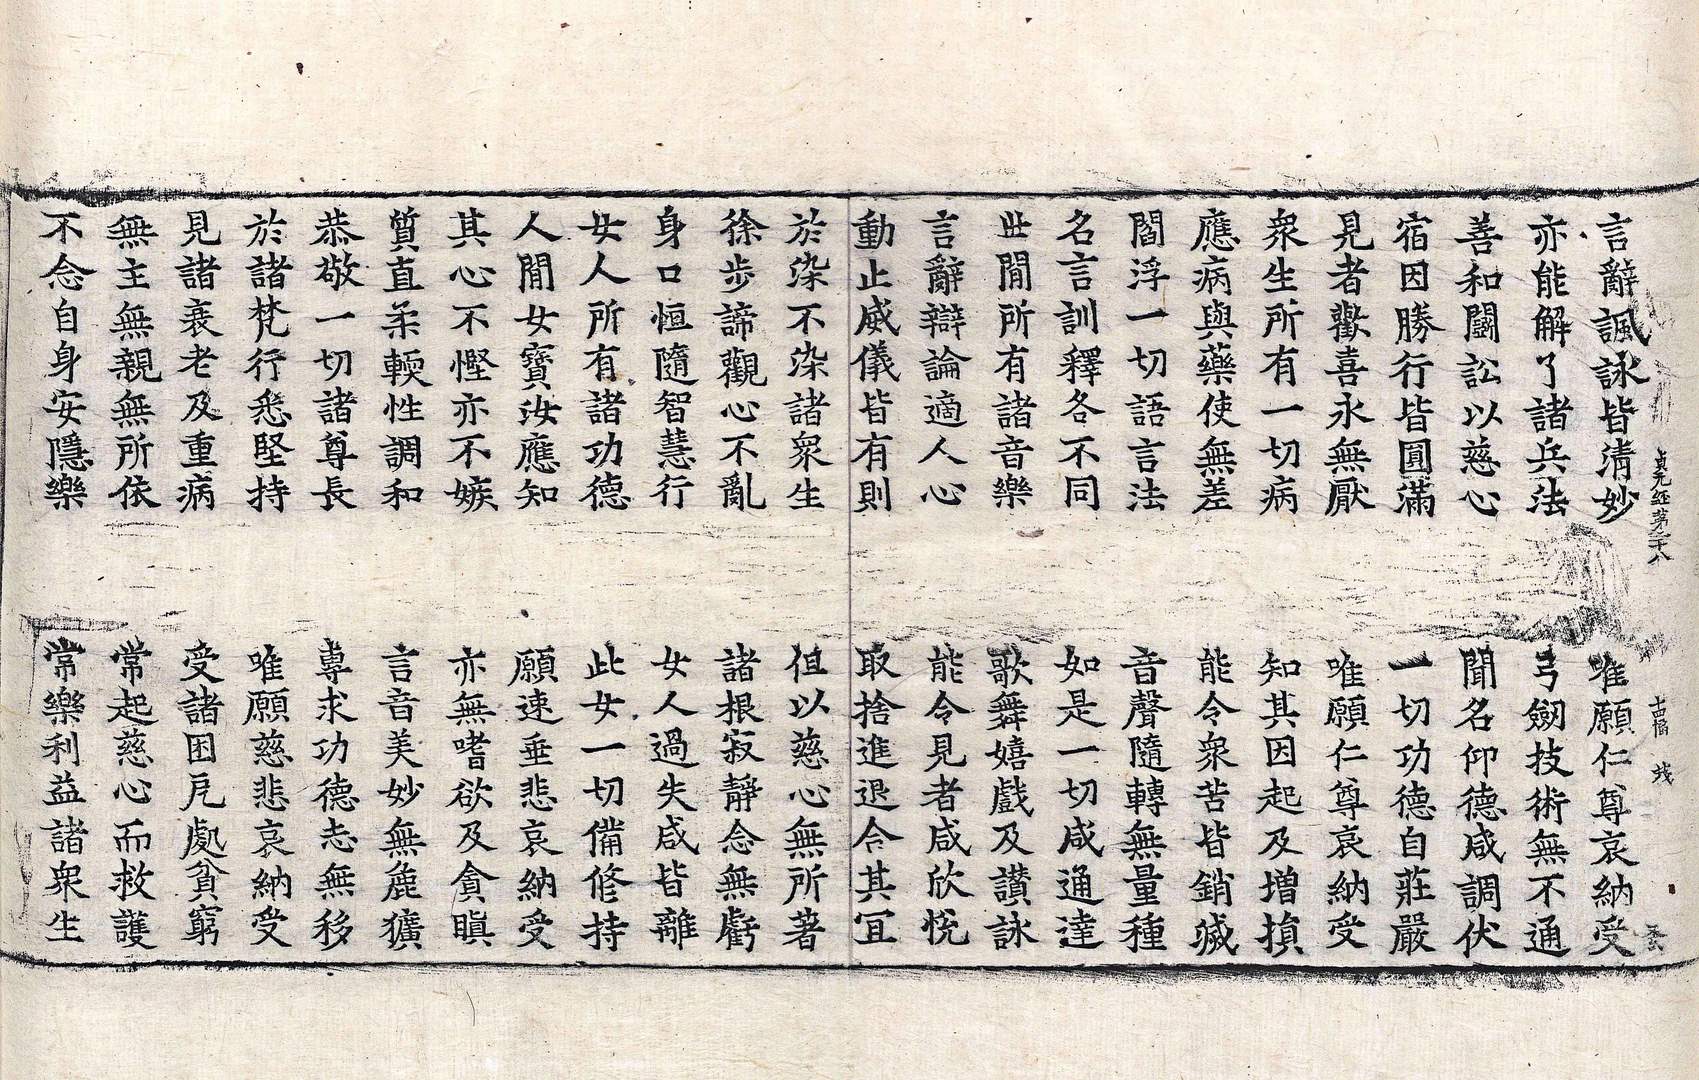 貞元經第二十八
言辭諷詠皆清妙 唯願仁尊哀納受
亦能解了諸兵法 弓劒技術無不通
善和鬪訟以慈心 聞名仰德咸調伏
宿因勝行皆圓滿 一切功德自莊嚴
見者歡喜永無厭 唯願仁尊哀納受
衆生所有一切病 知其因起及增損
應病與藥使無差 能令衆苦皆銷滅
閻浮一切語言法 音聲隨轉無量種
名言訓釋各不同 如是一切咸通達
世間所有諸音樂 歌舞嬉戲及讃詠
言辭辯論適人心 能令見者咸欣悅
動止威儀皆有則 取捨進退合其冝
於染不染諸衆生 但以慈心無所著
徐步諦觀心不亂 諸根寂靜念無虧
身口恒隨智慧行 女人過失咸皆離
女人所有諸功德 此女一切備修持
人間女寶汝應知 願速垂悲哀納受
其心不慳亦不嫉 亦無嗜欲及貪瞋
質直柔輭性調和 言音美妙無麁獷
恭敬一切諸尊長 專求功德志無移
於諸梵行悉堅持 唯願慈悲哀納受
見諸衰老及重病 受諸困厄處貧窮
無主無親無所依 常起慈心而救護
不念自身安隱樂 常樂利益諸衆生